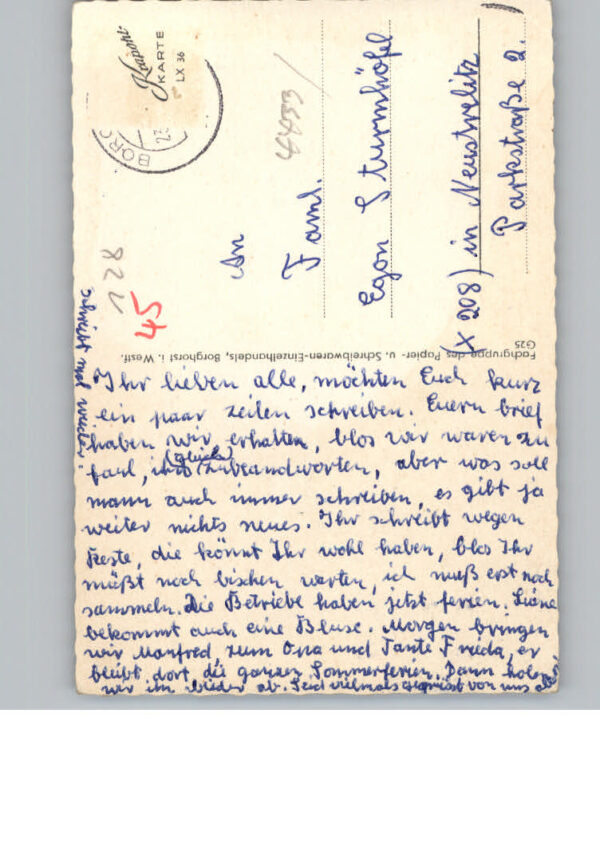 Krapohl-
KARTE
LX 36
BORG
4433
128
45
An
Faml.
Egon Sturmhöfel
(X 208) in Neustrelitz
Parkstraße 2.
Fachgruppe des Papier- u. Schreibwaren-Einzelhandels, Borghorst i. Westf.
G25
Ihr lieben alle, möchten Euch kurz
ein paar zeilen schreiben. Euern brief
haben wir erhalten, blos wir waren zu
faul, ihn (gleich) zubeandworten, aber was soll
mann auch immer schreiben, es gibt ja
weiter nichts neues. Ihr schreibt wegen
Reste, die könnt Ihr wohl haben, blos Ihr
müßt noch bischen warten, ich muß erst noch
sammeln. Die Betriebe haben jetzt ferien.
bekommt auch eine Bluse. Morgen bringen
wir Manfred zum Opa und Tante Frieda, er
bleibt dort die ganzen Sommerferien. Dann holen
wir ihn wieder ab. Seid vielmals gegrüsst von uns allen
schreibt mal wieder.